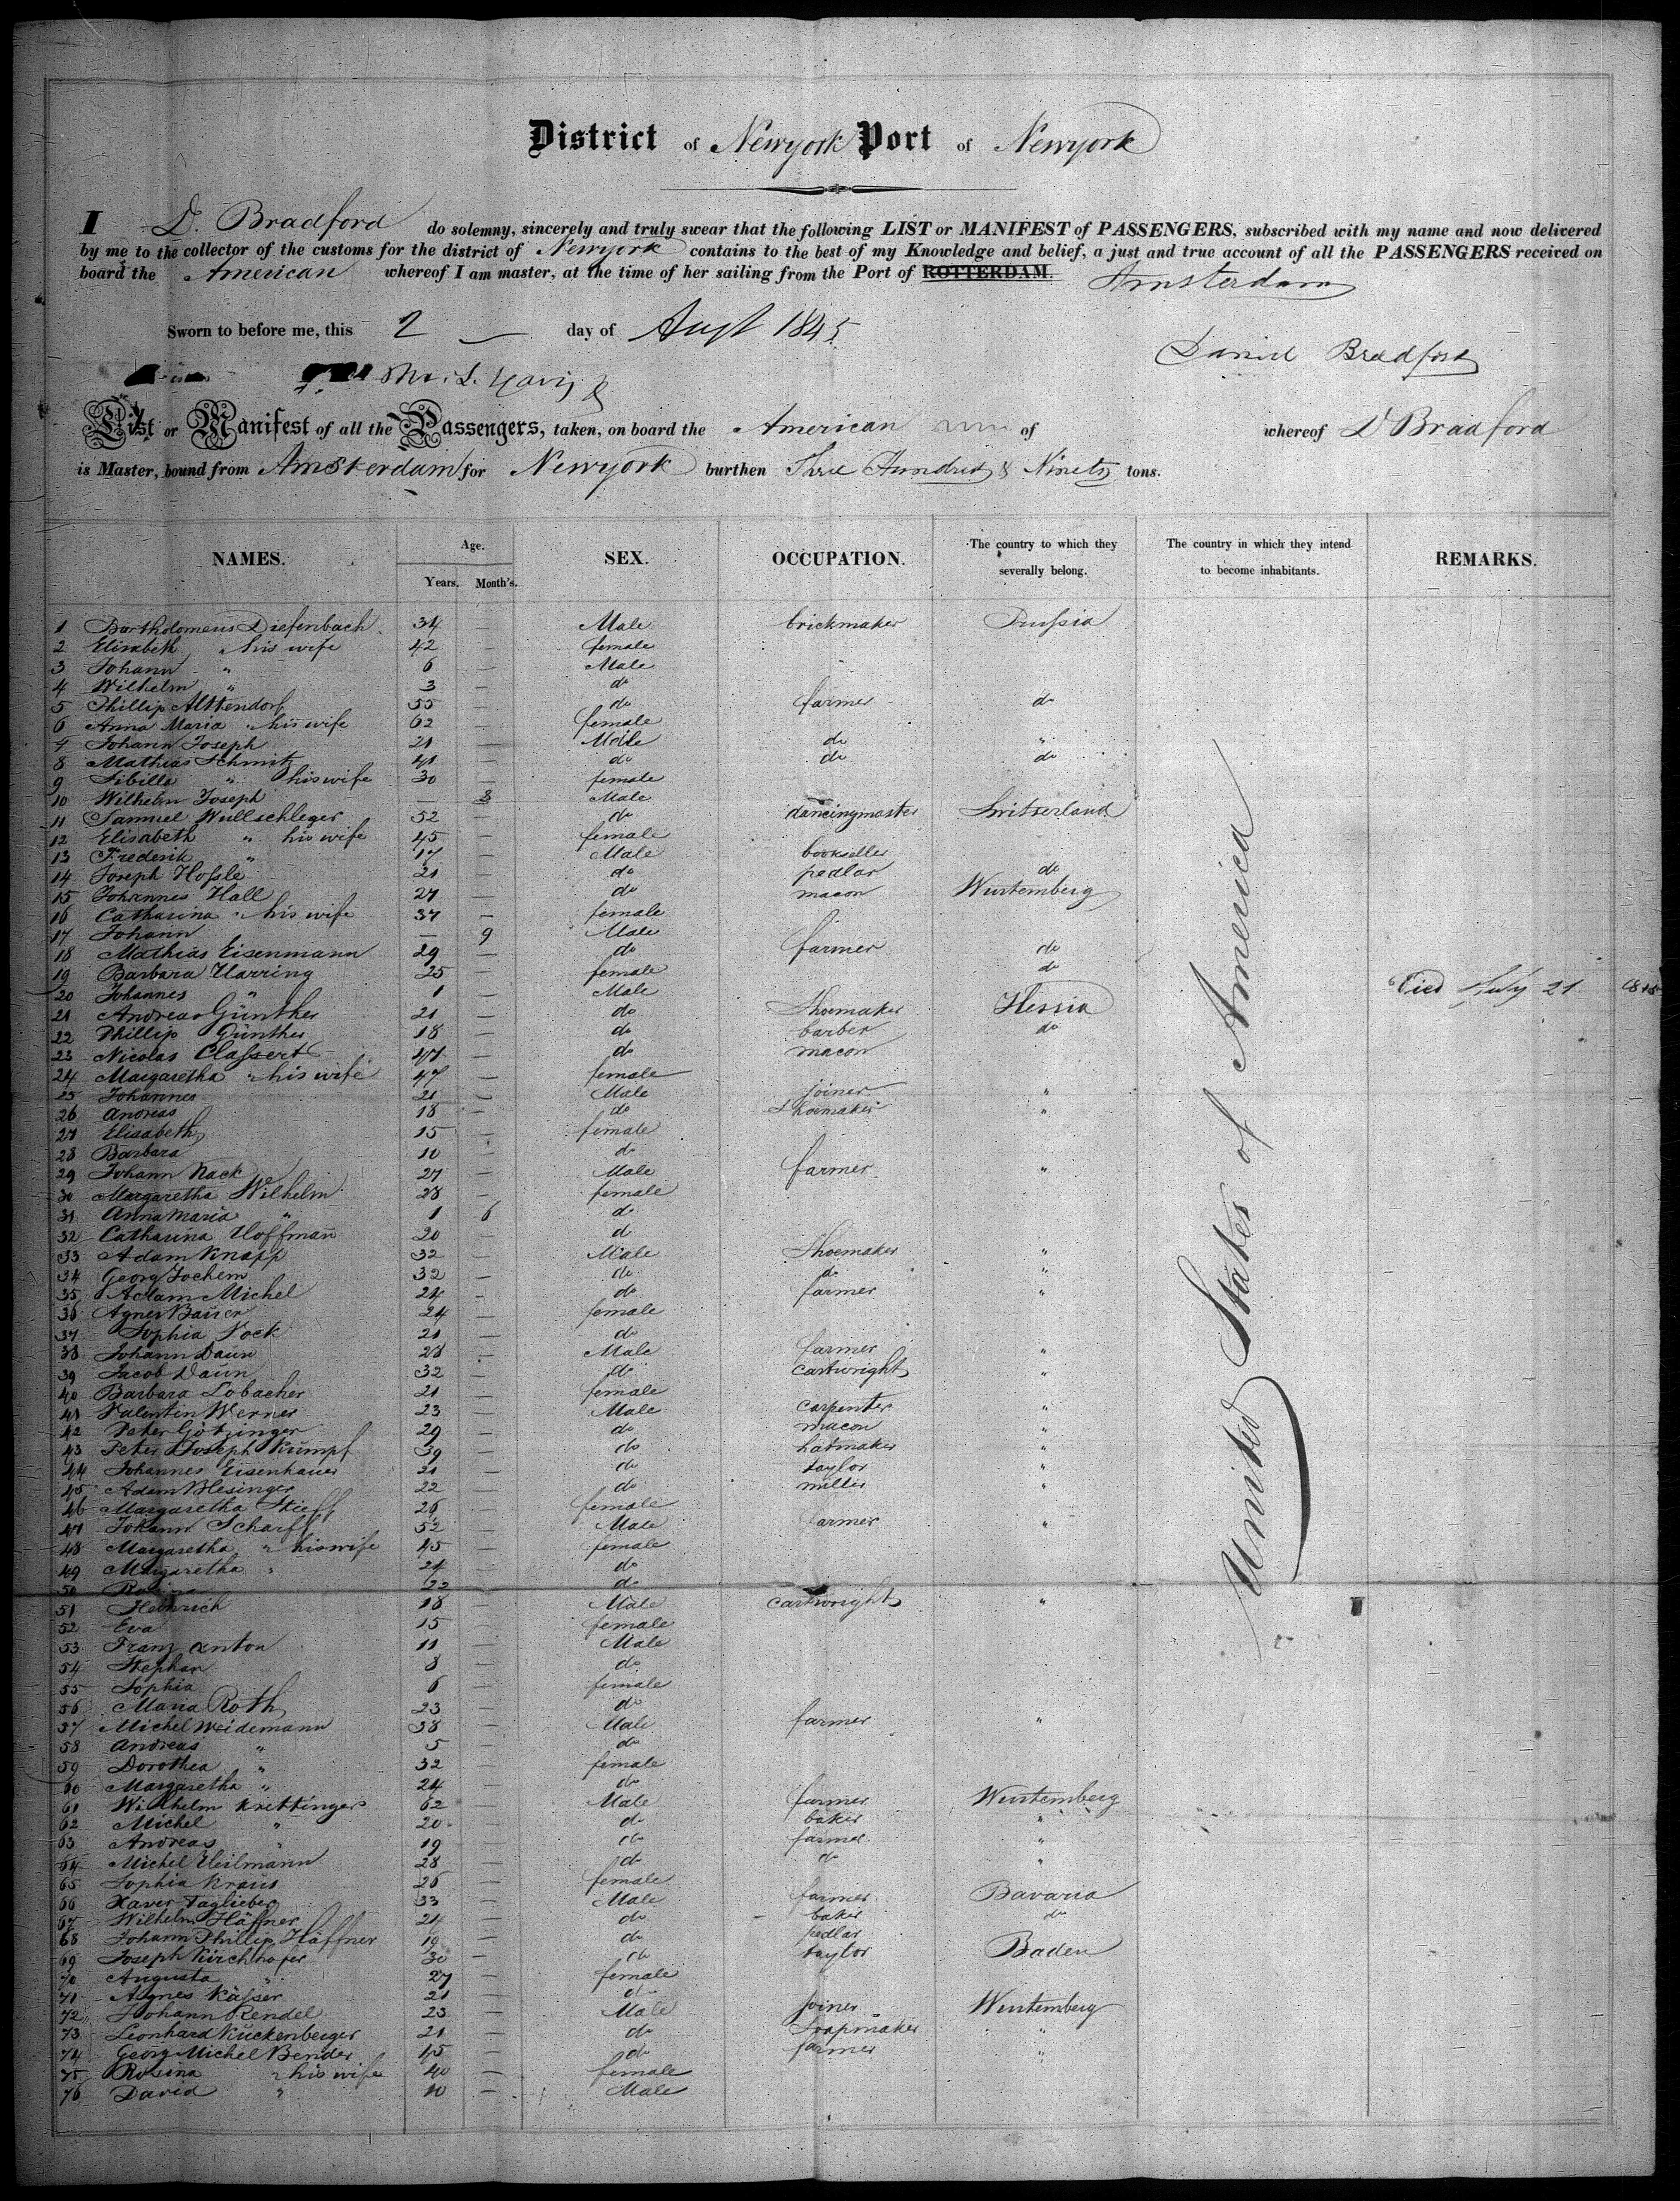 District of Newyork Port of Newyork
I D. Bradford do solemny, sincerely and truly swear that the following LIST or MANIFEST of PASSENGERS, subscribed with my name and now delivered
by me to the collector of the customs for the district of Newyork contains to the best of my Knowledge and belief, a just and true account of all the PASSENGERS received on
board the American whereof I am master, at the time of her sailing from the Port of ROTTERDAM. Amsterdam
Sworn to before me, this 2 day of Augt 1845
Daniel Bradford
List or Manifest of all the Passengers, taken, on board the American of whereof D Bradford
is Master, bound from Amsterdam for Newyork burthen Three Hundred & Ninety tons.
NAMES. Age. Years. Month's. SEX. OCCUPATION. The country to which they severally belong. The country in which they intend to become inhabitants. REMARKS.
United States of America
1 Bartholomeus Diefenbach 34 — Male brickmaker Prussia
2 Elisabeth " his wife 42 — female
3 Johann " 6 — Male
4 Wilhelm " 3 — do
5 Phillip Alttendorf 55 — do farmer do
6 Anna Maria " his wife 62 — female
7 Johann Joseph 21 — Male do "
8 Mathias Schmitz 41 — do do do
9 Sibilla " his wife 30 — female
10 Wilhelm Joseph — 3 Male
11 Samuel Wullschleger 52 — do dancingmaster Switserland
12 Elisabeth " his wife 45 — female
13 Frederik " 17 — Male bookseller
14 Joseph Hofsle 21 — do pedlar do
15 Johannes Hall 27 — do macon Wurtemberg
16 Catharina " his wife 37 — female
17 Johann — 9 Male
18 Mathias Eisenmann 29 — do farmer do
19 Barbara Harring 25 — female do
20 Johannes " 1 — Male Died July 21 1845
21 Andreas Günther 21 — do Shoemaker Hessia
22 Phillip Günther 18 — do barber do
23 Nicolas Classert 47 — do macon
24 Margaretha " his wife 47 — female
25 Johannes 21 — Male joiner "
26 Andreas 18 — do Shoemaker "
27 Elisabeth 15 — female
28 Barbara 10 — do
29 Johann Nack 27 — Male farmer "
30 Margaretha Wilhelm 28 — female
31 Anna Maria " 1 6 do
32 Catharina Hoffman 20 — d
33 Adam Knapp 32 — Male Shoemaker "
34 Georg Jochem 32 — do do "
35 Adam Michel 24 — do farmer "
36 Agnes Bauer 24 — female
37 Sophia Nock 21 — do
38 Johann Daun 28 — Male farmer "
39 Jacob Daun 32 — do cartwright "
40 Barbara Lobacher 21 — female
41 Valentin Werner 23 — Male carpenter "
42 Peter Götzinger 29 — do macon "
43 Peter Joseph Kumpf 39 — do hatmaker "
44 Johannes Eisenhauer 21 — do taylor "
45 Adam Blesinger 22 — do miller "
46 Margaretha Stieff 26 — female
47 Johann Scharff 52 — Male farmer "
48 Margaretha " his wife 45 — female
49 Margaretha " 24 — do
50 22 — do
51 Heinrich 18 — Male cartwright "
52 Eva 15 — female
53 Franz Anton 11 — Male
54 Stephan 8 — do
55 Sophia 6 — female
56 Maria Roth 23 — do
57 Michel Weidemann 38 — Male farmer "
58 Andreas " 5 — do
59 Dorothea " 32 — female
60 Margaretha " 24 — do
61 Wilhelm Krettinger 62 — Male farmer Wurtemberg
62 Michel " 20 — do baker "
63 Andreas " 19 — do farmer "
64 Michel Heilmann 28 — do do "
65 Sophia Kraus 26 — female
66 Xaver Taglieber 33 — Male farmer Bavaria
67 Wilhelm Häffner 24 — do baker do
68 Johann Phillip Häffner 19 — do pedlar
69 Joseph Kirchhofer 30 — do taylor Baden
70 Augusta " 27 — female
71 Agnes Kässer 21 — do
72 Johann Rendel 23 — Male Joiner Wurtemberg
73 Leonhard Kuckenberger 21 — do Soapmaker "
74 Georg Michel Bender 45 — do farmer "
75 Rosina " his wife 40 — female
76 David " 10 — Male